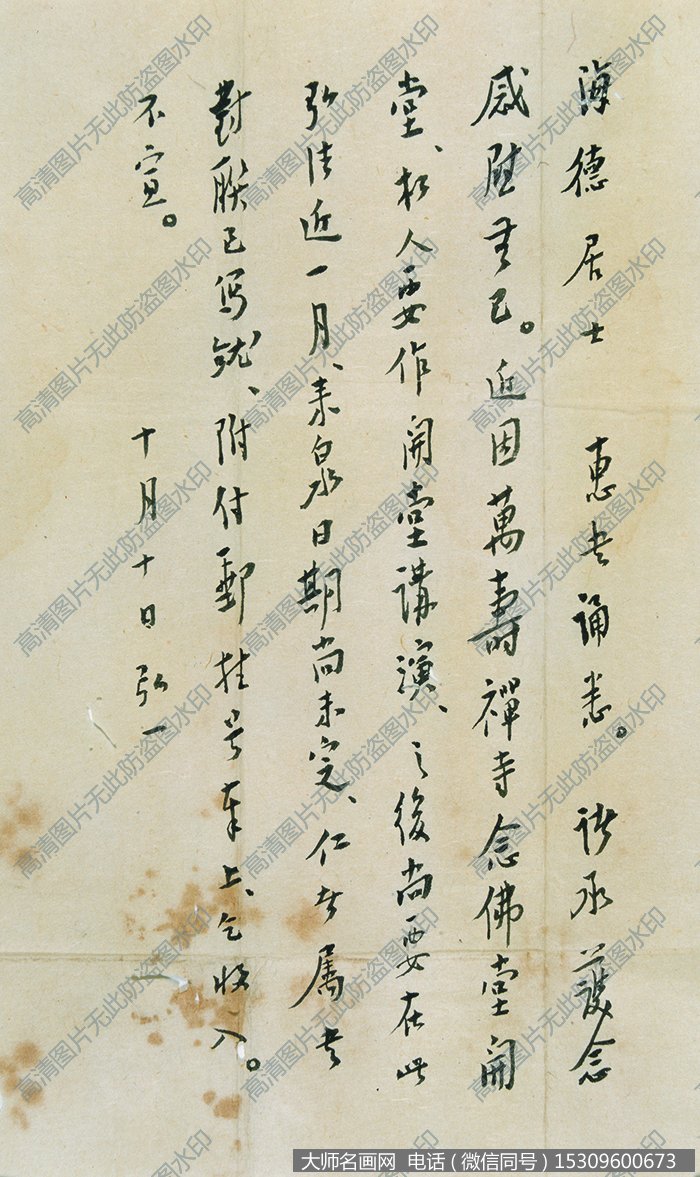 海德居士 惠书诵悉。诸承護念
感慰無已。近因萬壽禪寺念佛堂開
堂、朽人要作開堂講演、之後尚要在此
弘法近一月、来泉日期尚未定、仁者属书
對联已写就、附付郵挂号奉上、乞收入。
不宣。
十月十日 弘一
高清图片无此防盗图水印
大师名画网 电话(微信同号)15309600673